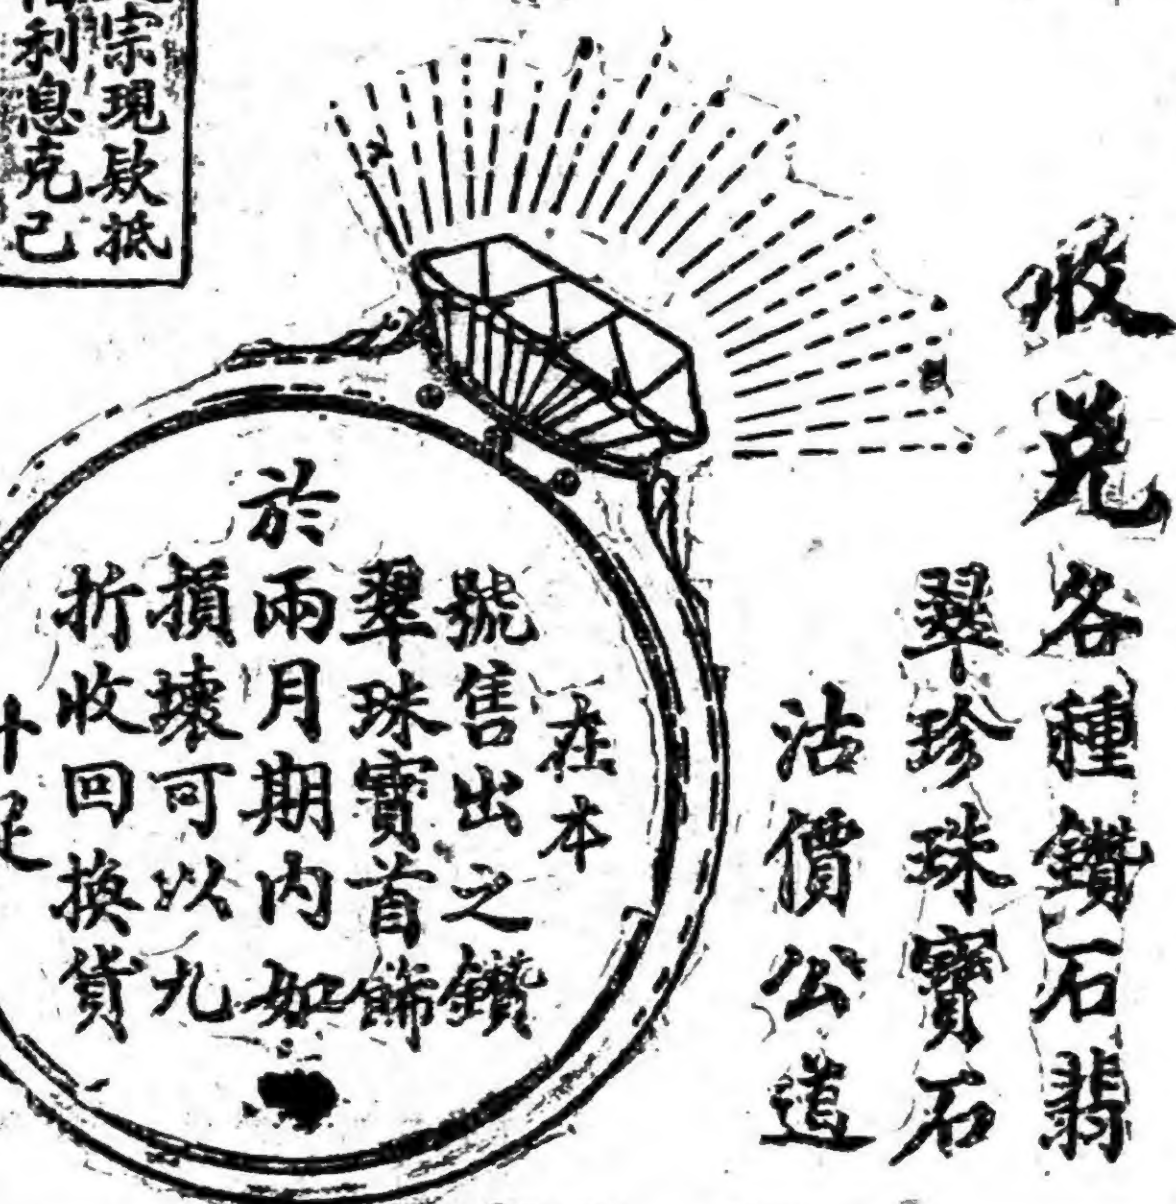 收兌各種鑽石翡
翠珍珠寶石
沽價公道
在本
號售出之鑽
翠珠寶首飾
於兩月期內如
損壞可以九
折收回換貨
宗現款抵
利息克己